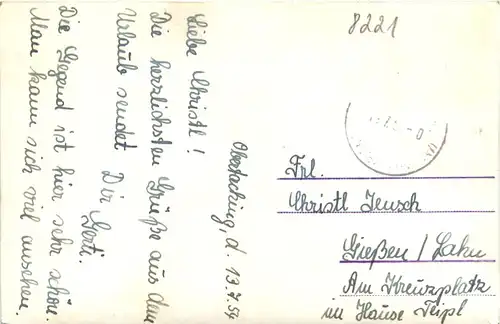 8221
Obertaching, d. 13.7.54
Liebe Christl!
Die herzlichsten Grüße aus dem
Urlaub sendet Dir
Gerti.
Die Gegend ist hier sehr schön.
Man kann sich viel ansehen.
Frl.
Christl Jeusch
Gießen / Lahn
Am Kreuzplatz
im Hause Teipl